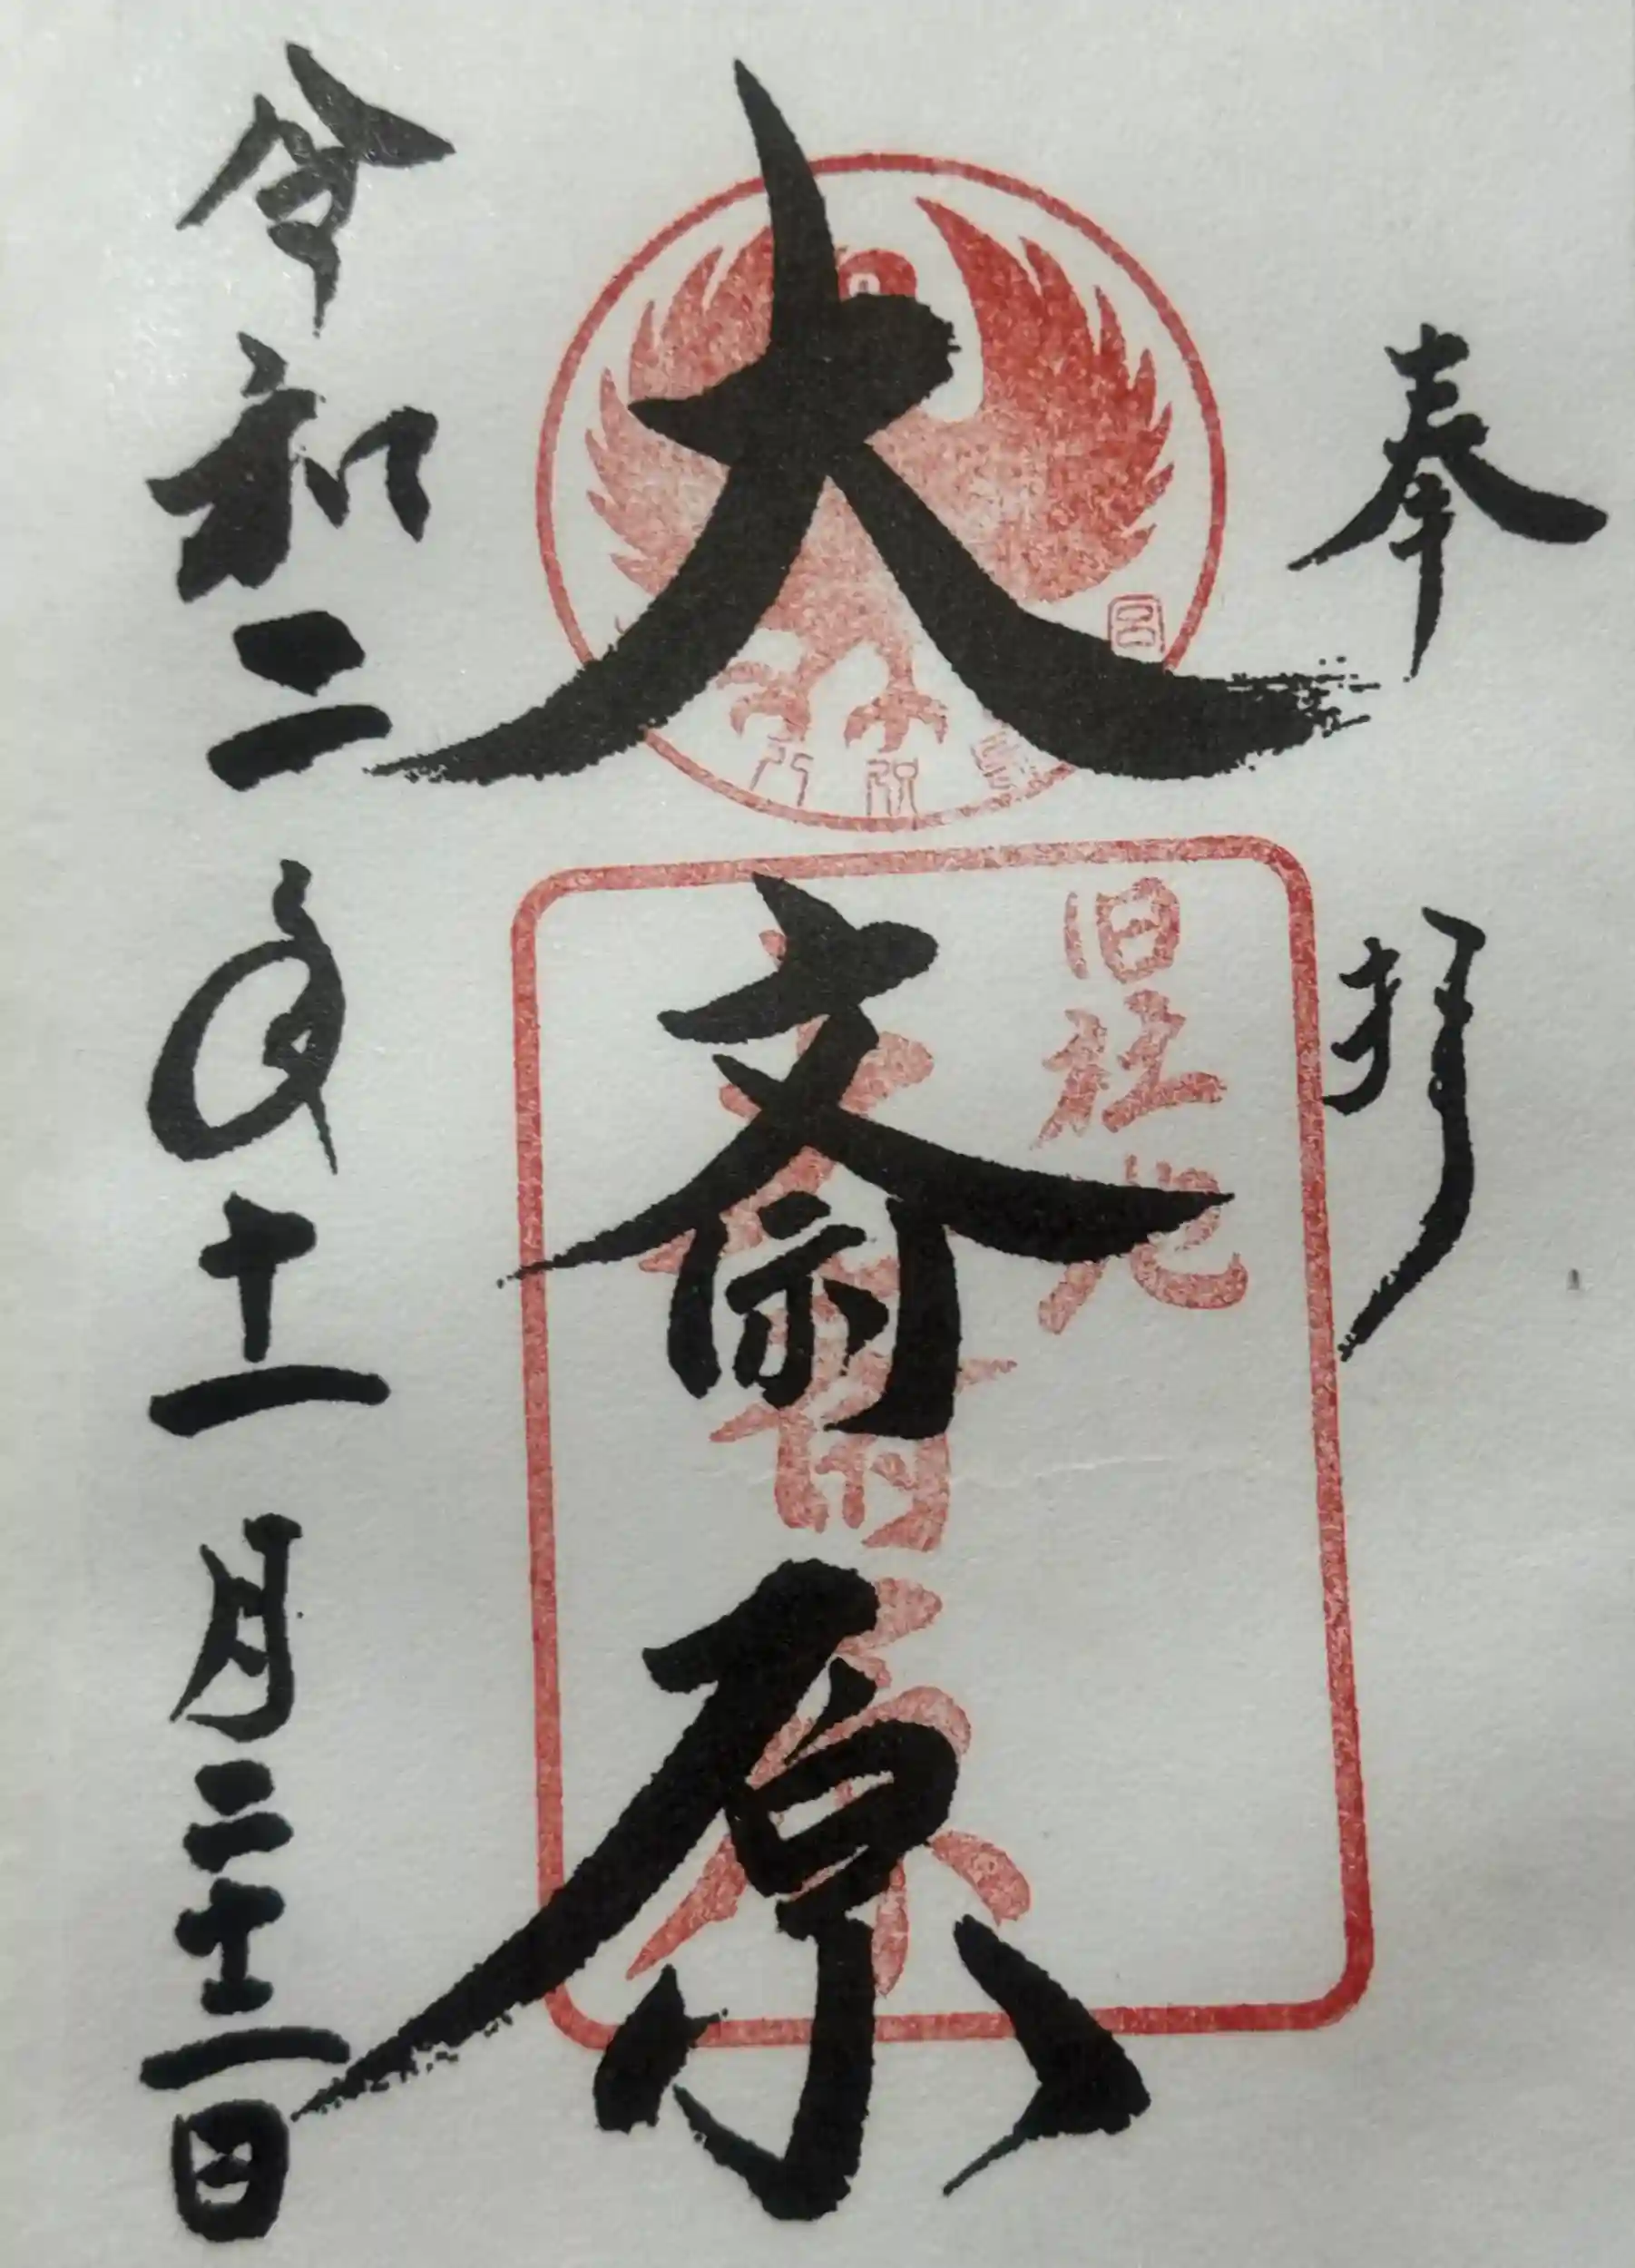 奉拝
旧社地
大斎原
大斎原
令和二年十一月二十二日